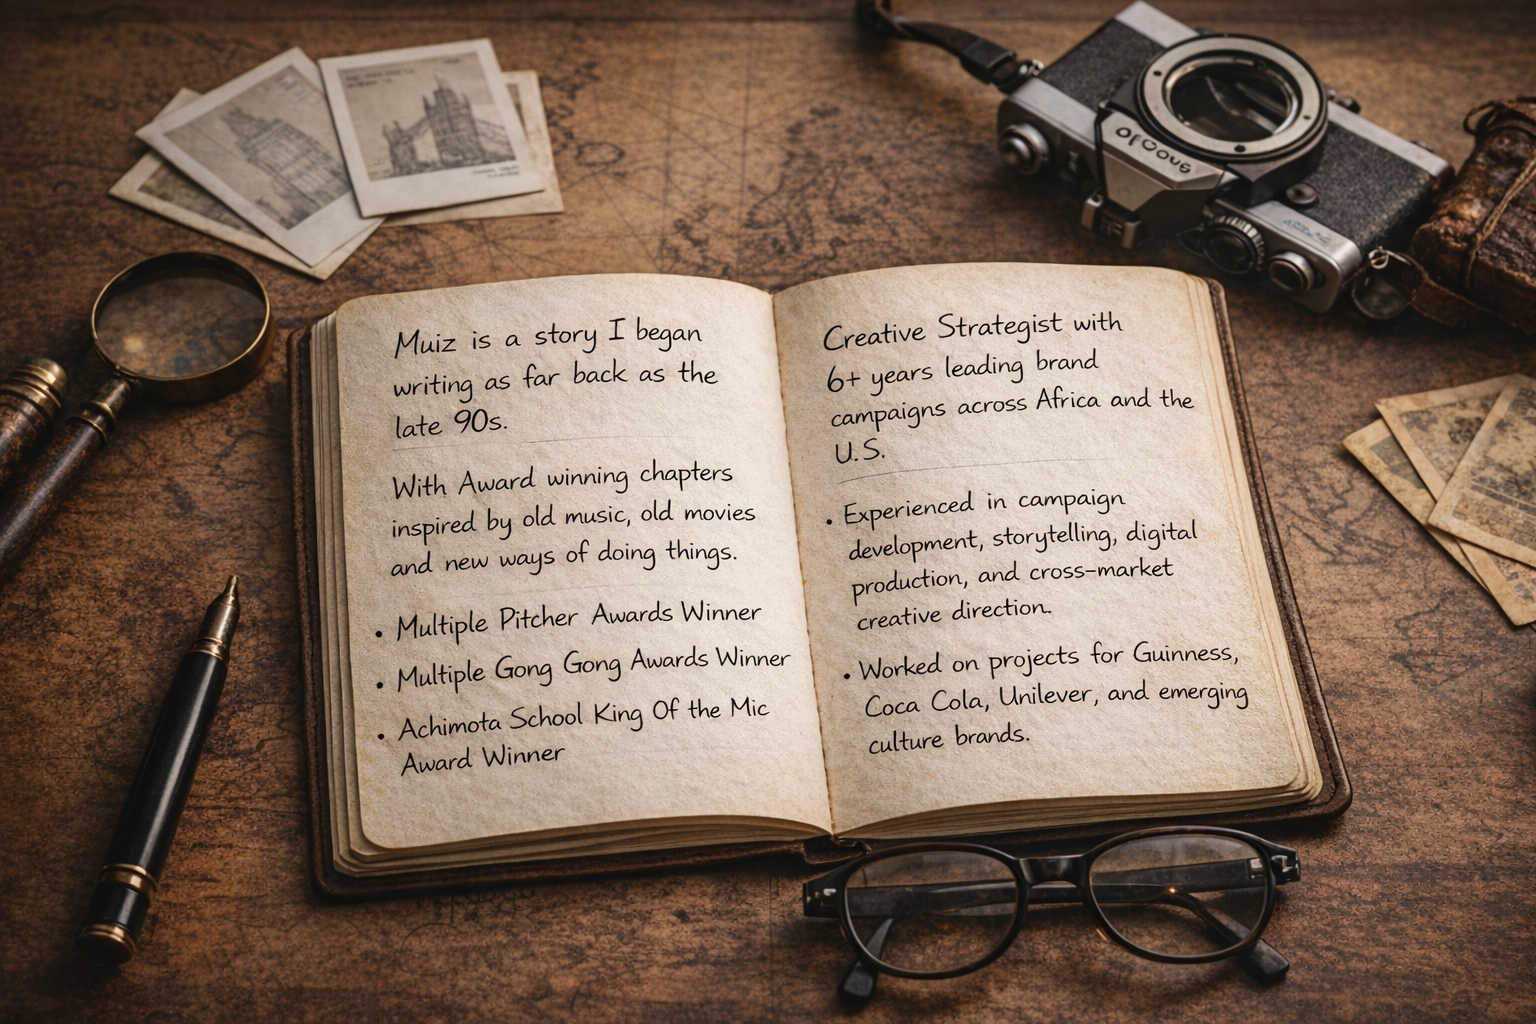 Muiz is a story I began
writing as far back as the
late 90s.
With Award winning chapters
inspired by old music, old movies
and new ways of doing things.
• Multiple Pitcher Awards Winner
• Multiple Gong Gong Awards Winner
• Achimota School King Of the Mic
Award Winner
Creative Strategist with
6+ years leading brand
campaigns across Africa and the
U.S.
• Experienced in campaign
development, storytelling, digital
production, and cross-market
creative direction.
• Worked on projects for Guinness,
Coca Cola, Unilever, and emerging
culture brands.